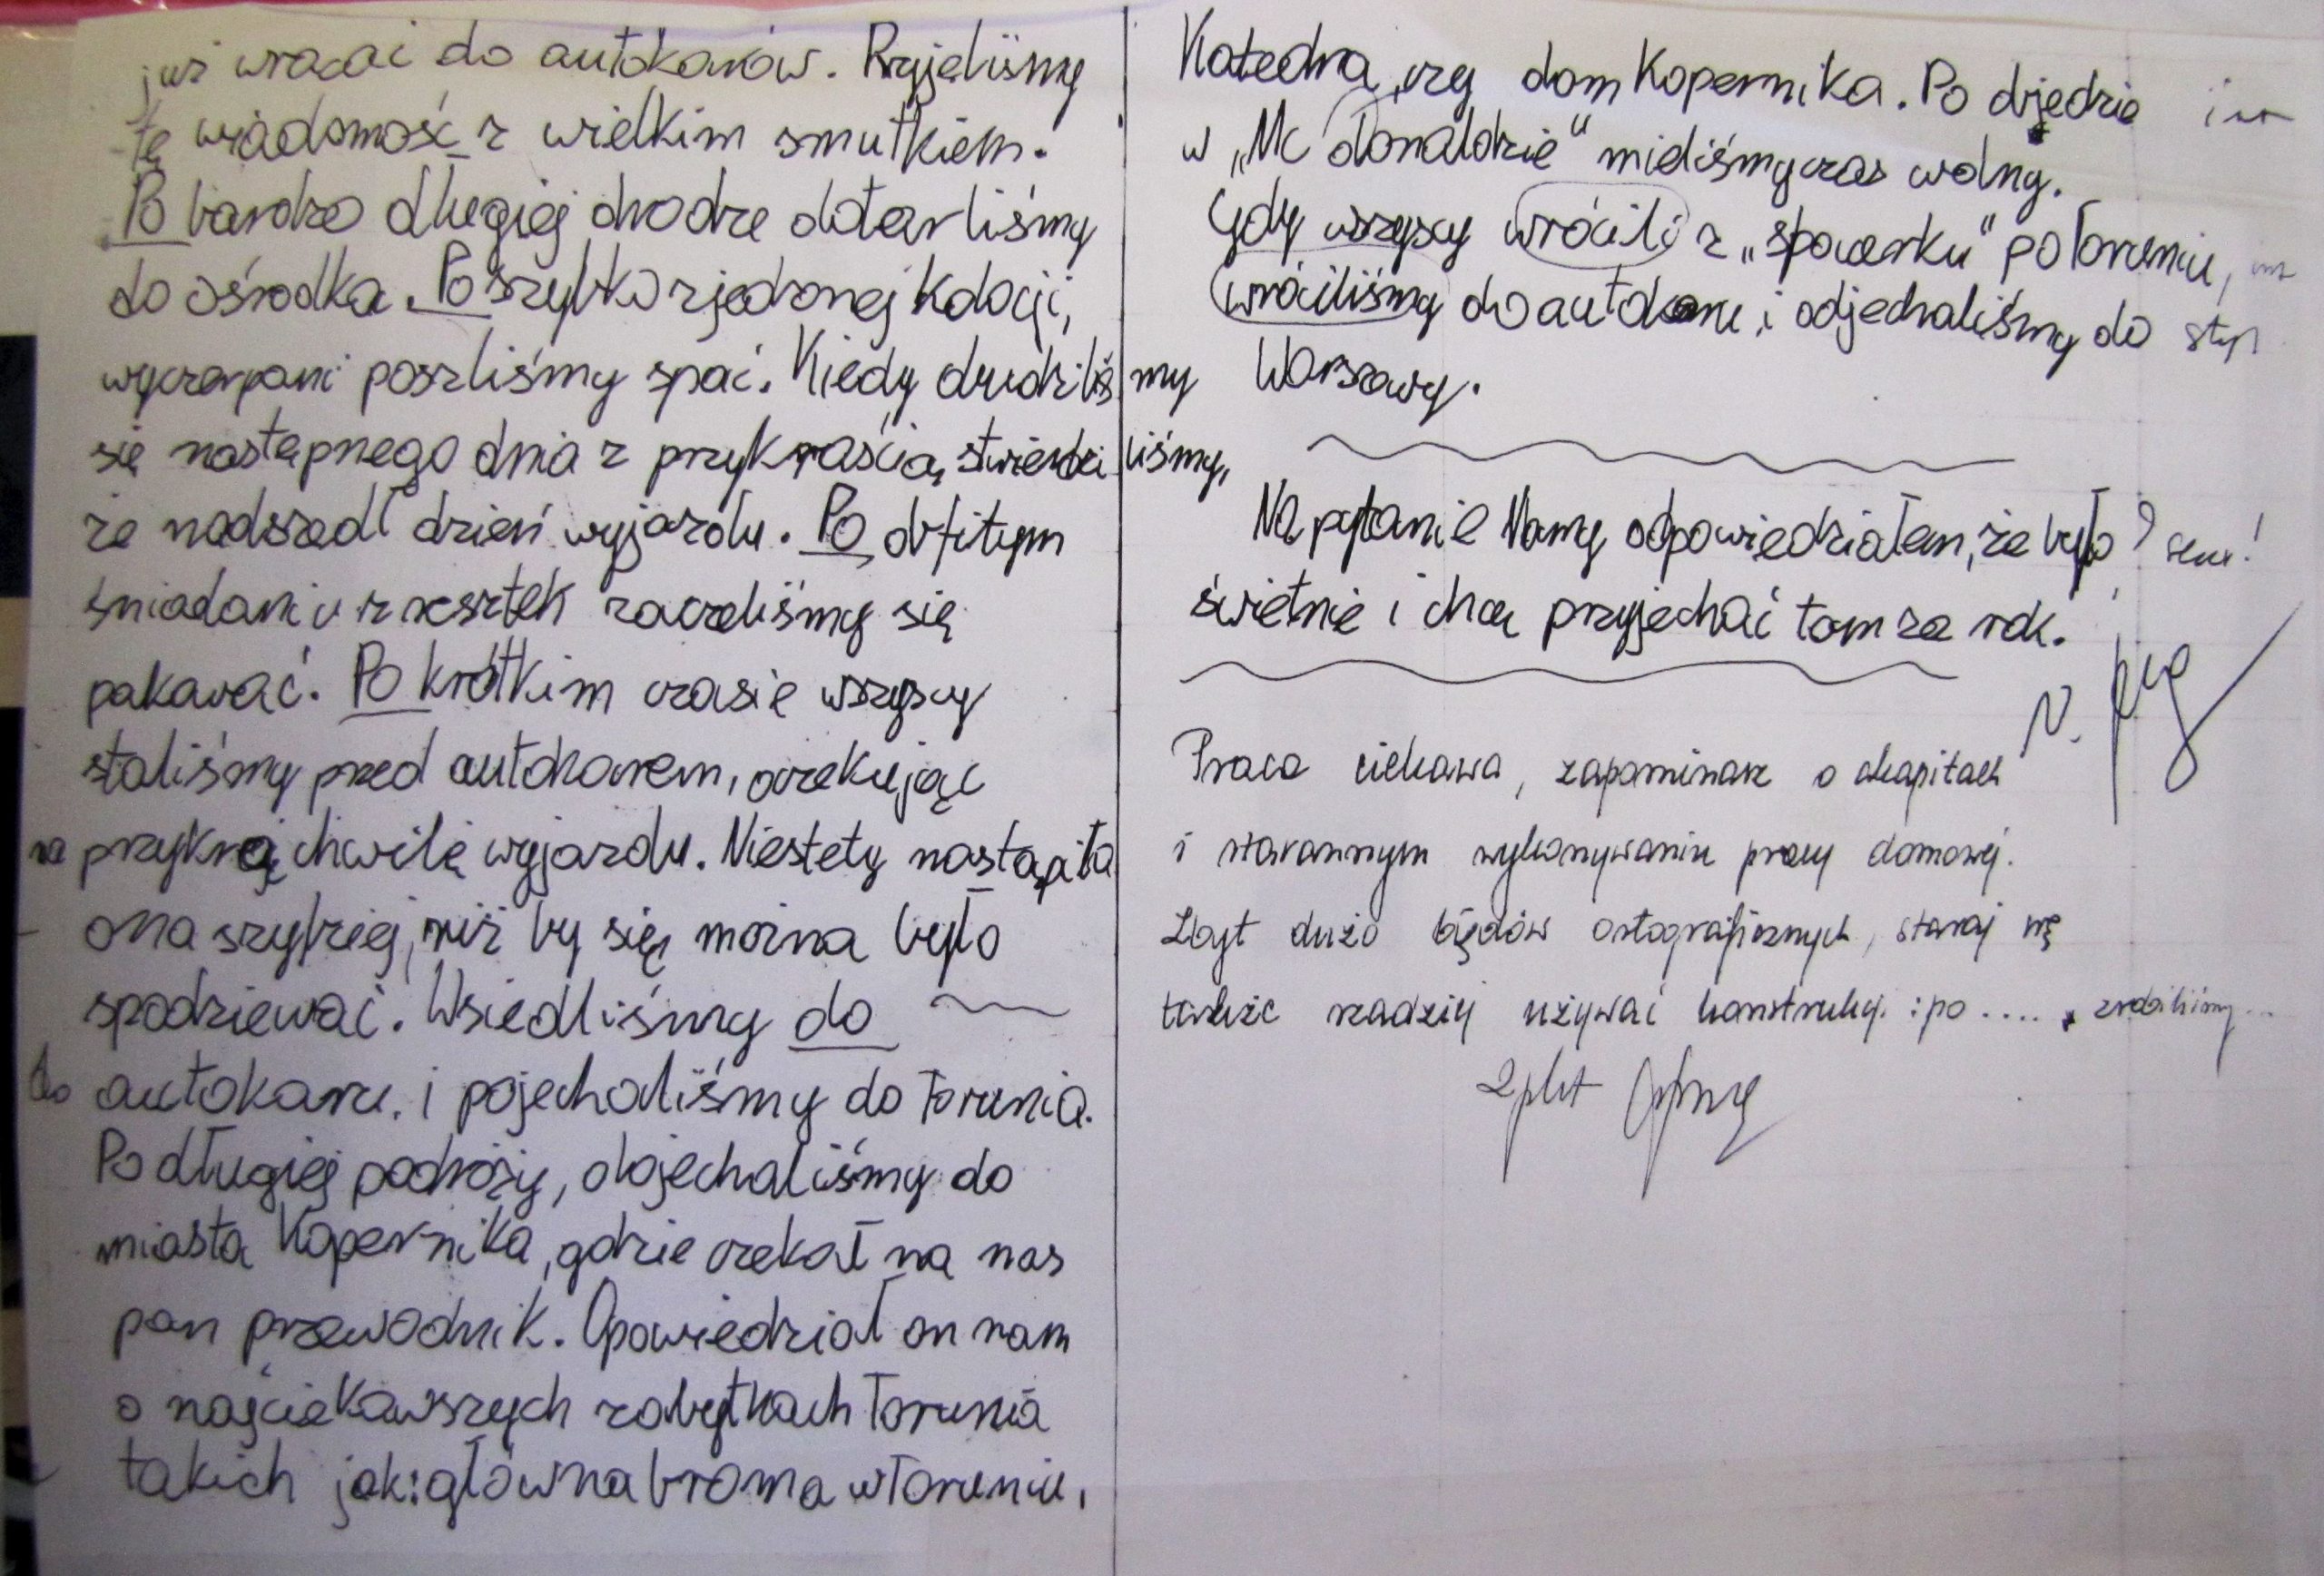 już wracać do autokarów. Przyjeliśmy
tę wiadomość z wielkim smutkiem.
Po bardzo długiej drodze dotarliśmy
do ośrodka. Po szybko zjedzonej kolacji,
wyczerpani poszliśmy spać. Kiedy budziliśmy
się następnego dnia z przykrością stwierdziliśmy,
że nadszedł dzień wyjazdu. Po obfitym
śniadaniu z resztek zaczeliśmy się
pakować. Po krótkim czasie wszyscy
staliśmy przed autokarem, oczekując
na przykrą chwilę wyjazdu. Niestety nastąpiła
ona szybciej, niż by się można było
spodziewać. Wsiedliśmy do
do autokaru. i pojechaliśmy do Torunia.
Po długiej podróży, dojechaliśmy do
miasta Kopernika, gdzie czekał na nas
pan przewodnik. Opowiedział on nam
o najciekawszych zabytkach Torunia
takich jak: główna brama w Toruniu,
Katedra, czy dom Kopernika. Po objedzie
w „Mc Donaldzie" mieliśmy czas wolny.
Gdy wszyscy wrócili z „spacerku" po Toruniu,
wróciliśmy do autokaru i odjechaliśmy do styl
Warszawy.
Na pytanie Mamy odpowiedziałem, że było ? sens!
świetnie i chcę przyjechać tam za rok.
Praca ciekawa, zapominasz o akapitach
i starannym wykonywaniu pracy domowej.
Zbyt dużo błędów ortograficznych, staraj się
także rzadziej używać konstrukcji: po .... , zrobiliśmy...